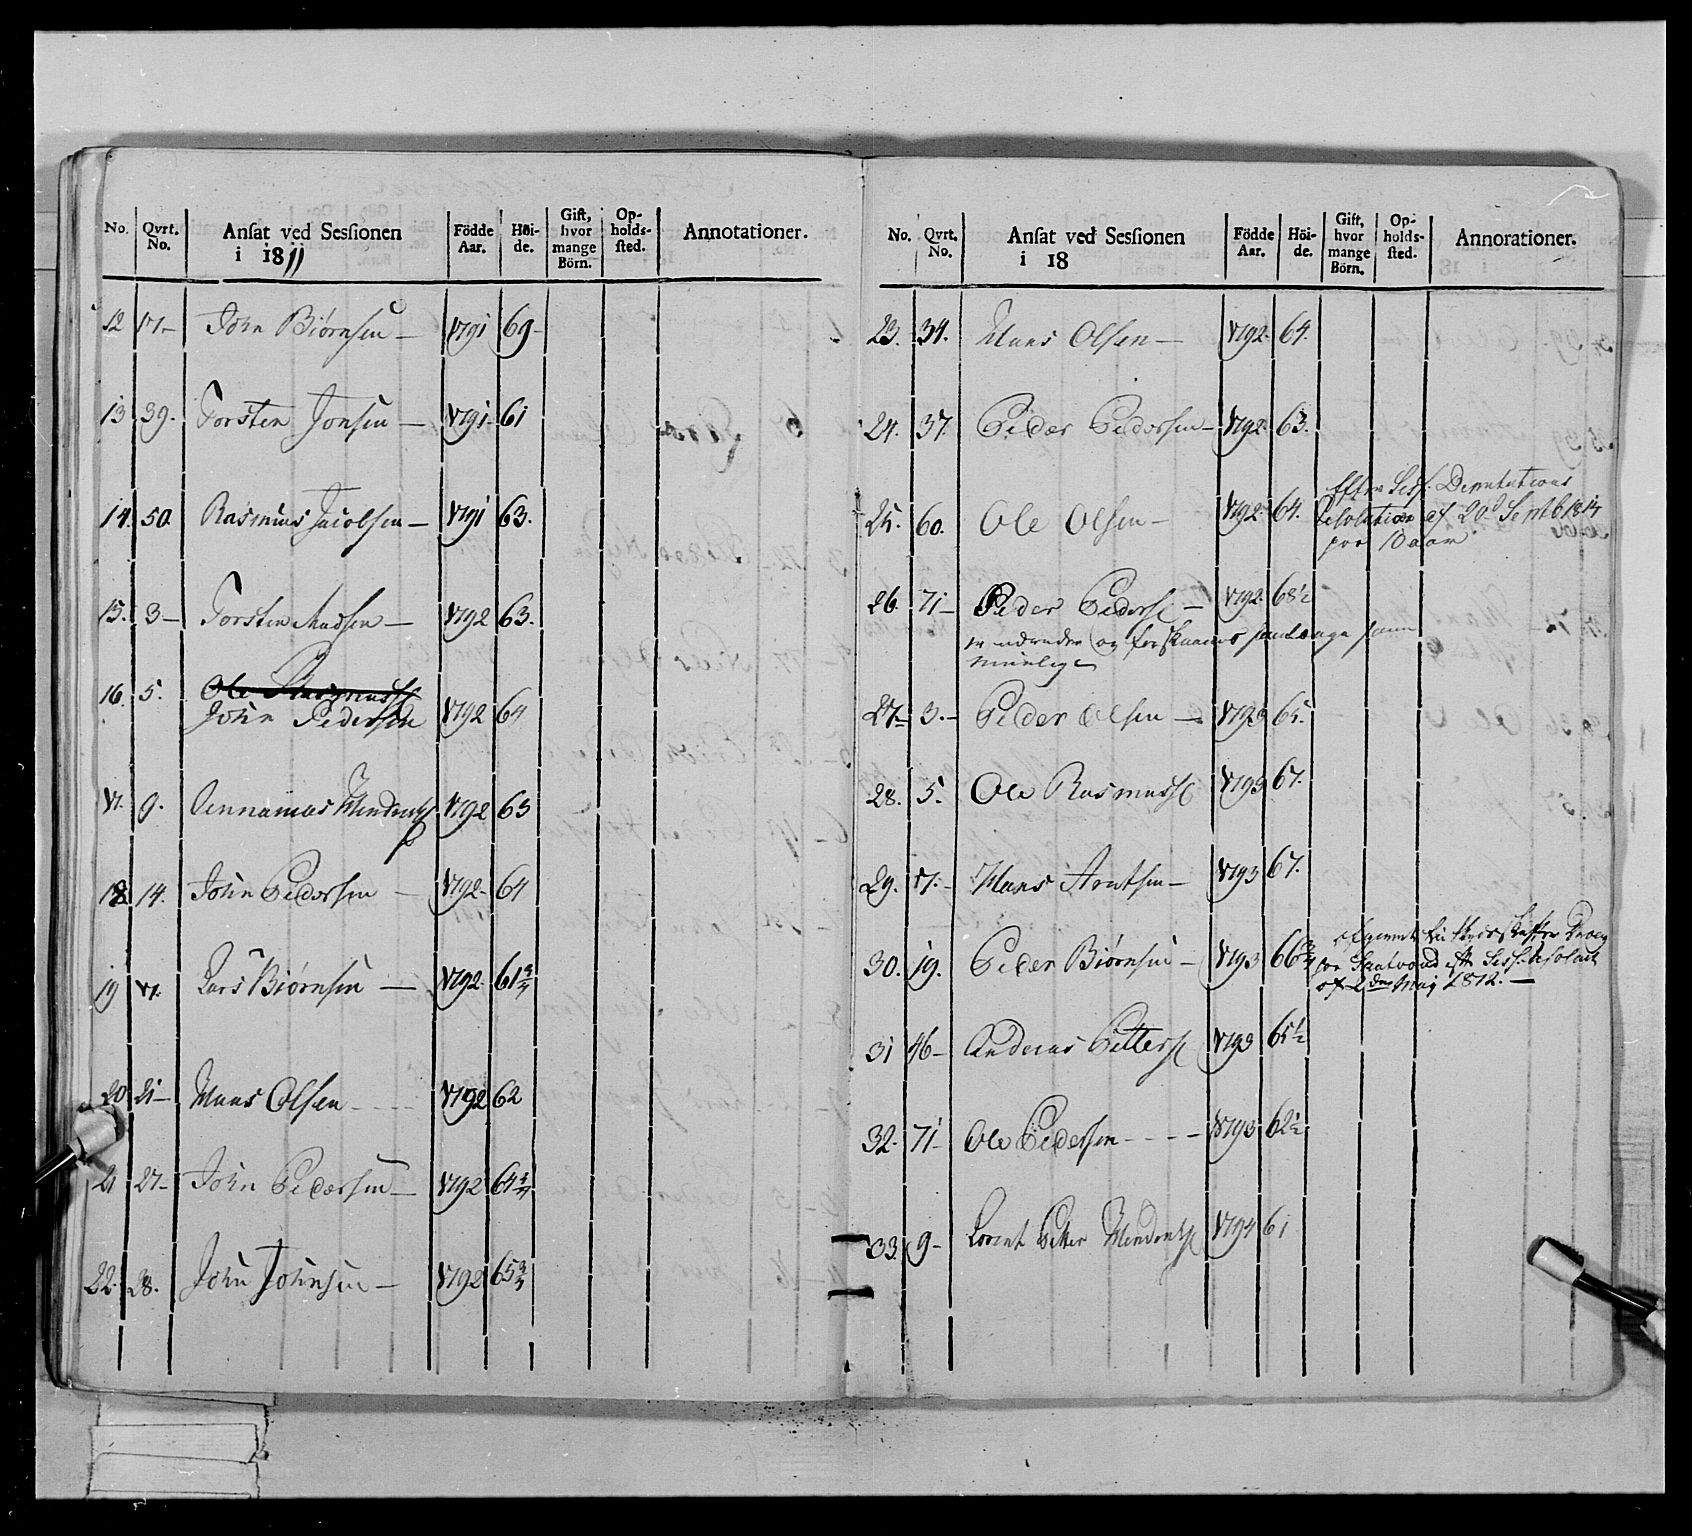 No. Qvrt. No. Ansat ved Sessionen i 1811 Födde Aar. Höide. Gift, hvor mange Börn. Opholdssted. Annotationer.
12 17- John Biörnsen - 1791 69-
13 39. Torsten Jonsen - 1791 61
14. 50 Rasmus Jacobsen - 1791 63.
15. 3- Torsten Madsen - 1792 63.
16. 5. Ole Rasmuss
John Pedersen 1792 64
17. 9. 1792 63
18 14. John Pedersen - 1792 64
19 17. Lars Biörnsen - 1792 61 3/4
20 21- Mons Olsen - - - 1792 62
21 27- John Pedersen - 1792 64 3/4
22. 28. John Johnsen - 1792 65 3/4
No. Qvrt. No. Ansat ved Sessionen i 18 Födde Aar. Höide. Gift, hvor mange Börn. Opholdssted. Annorationer.
23. 34. Mons Olsen - 1792 64.
24. 37. Peder Pedersen - 1792 63.
25. 60. Ole Olsen - 1792 64. Efter Sess. Deputations
Resolution af 20d Septb 1814
10 aar
26. 71- Peder Peders - 1792 68 1/2
er og
27- 3.- Peder Olsen - 1793 65.
28. 5. Ole Rasmuss 1793 67.
29. 17.- Mons Arntsen - 1793 67.
30. 19. Peder Biörnsen - 1793 66 3/4
for efter Sess. Resolut
af 2den May 1812. -
31 46- Andreas Petters 1793 65 1/2
32. 71- Ole Pedersen - - - - 1793 62 1/2
33. 9- Lorent Petter 1794 61